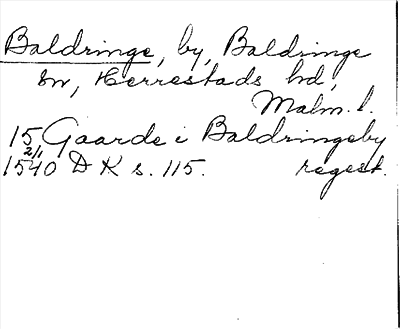 Baldringe, by, Baldringe
sn, Herrestads hd,
Malm. l.
15 Gaarde i Baldringeby
2/1
1540 D K s. 115. regest.